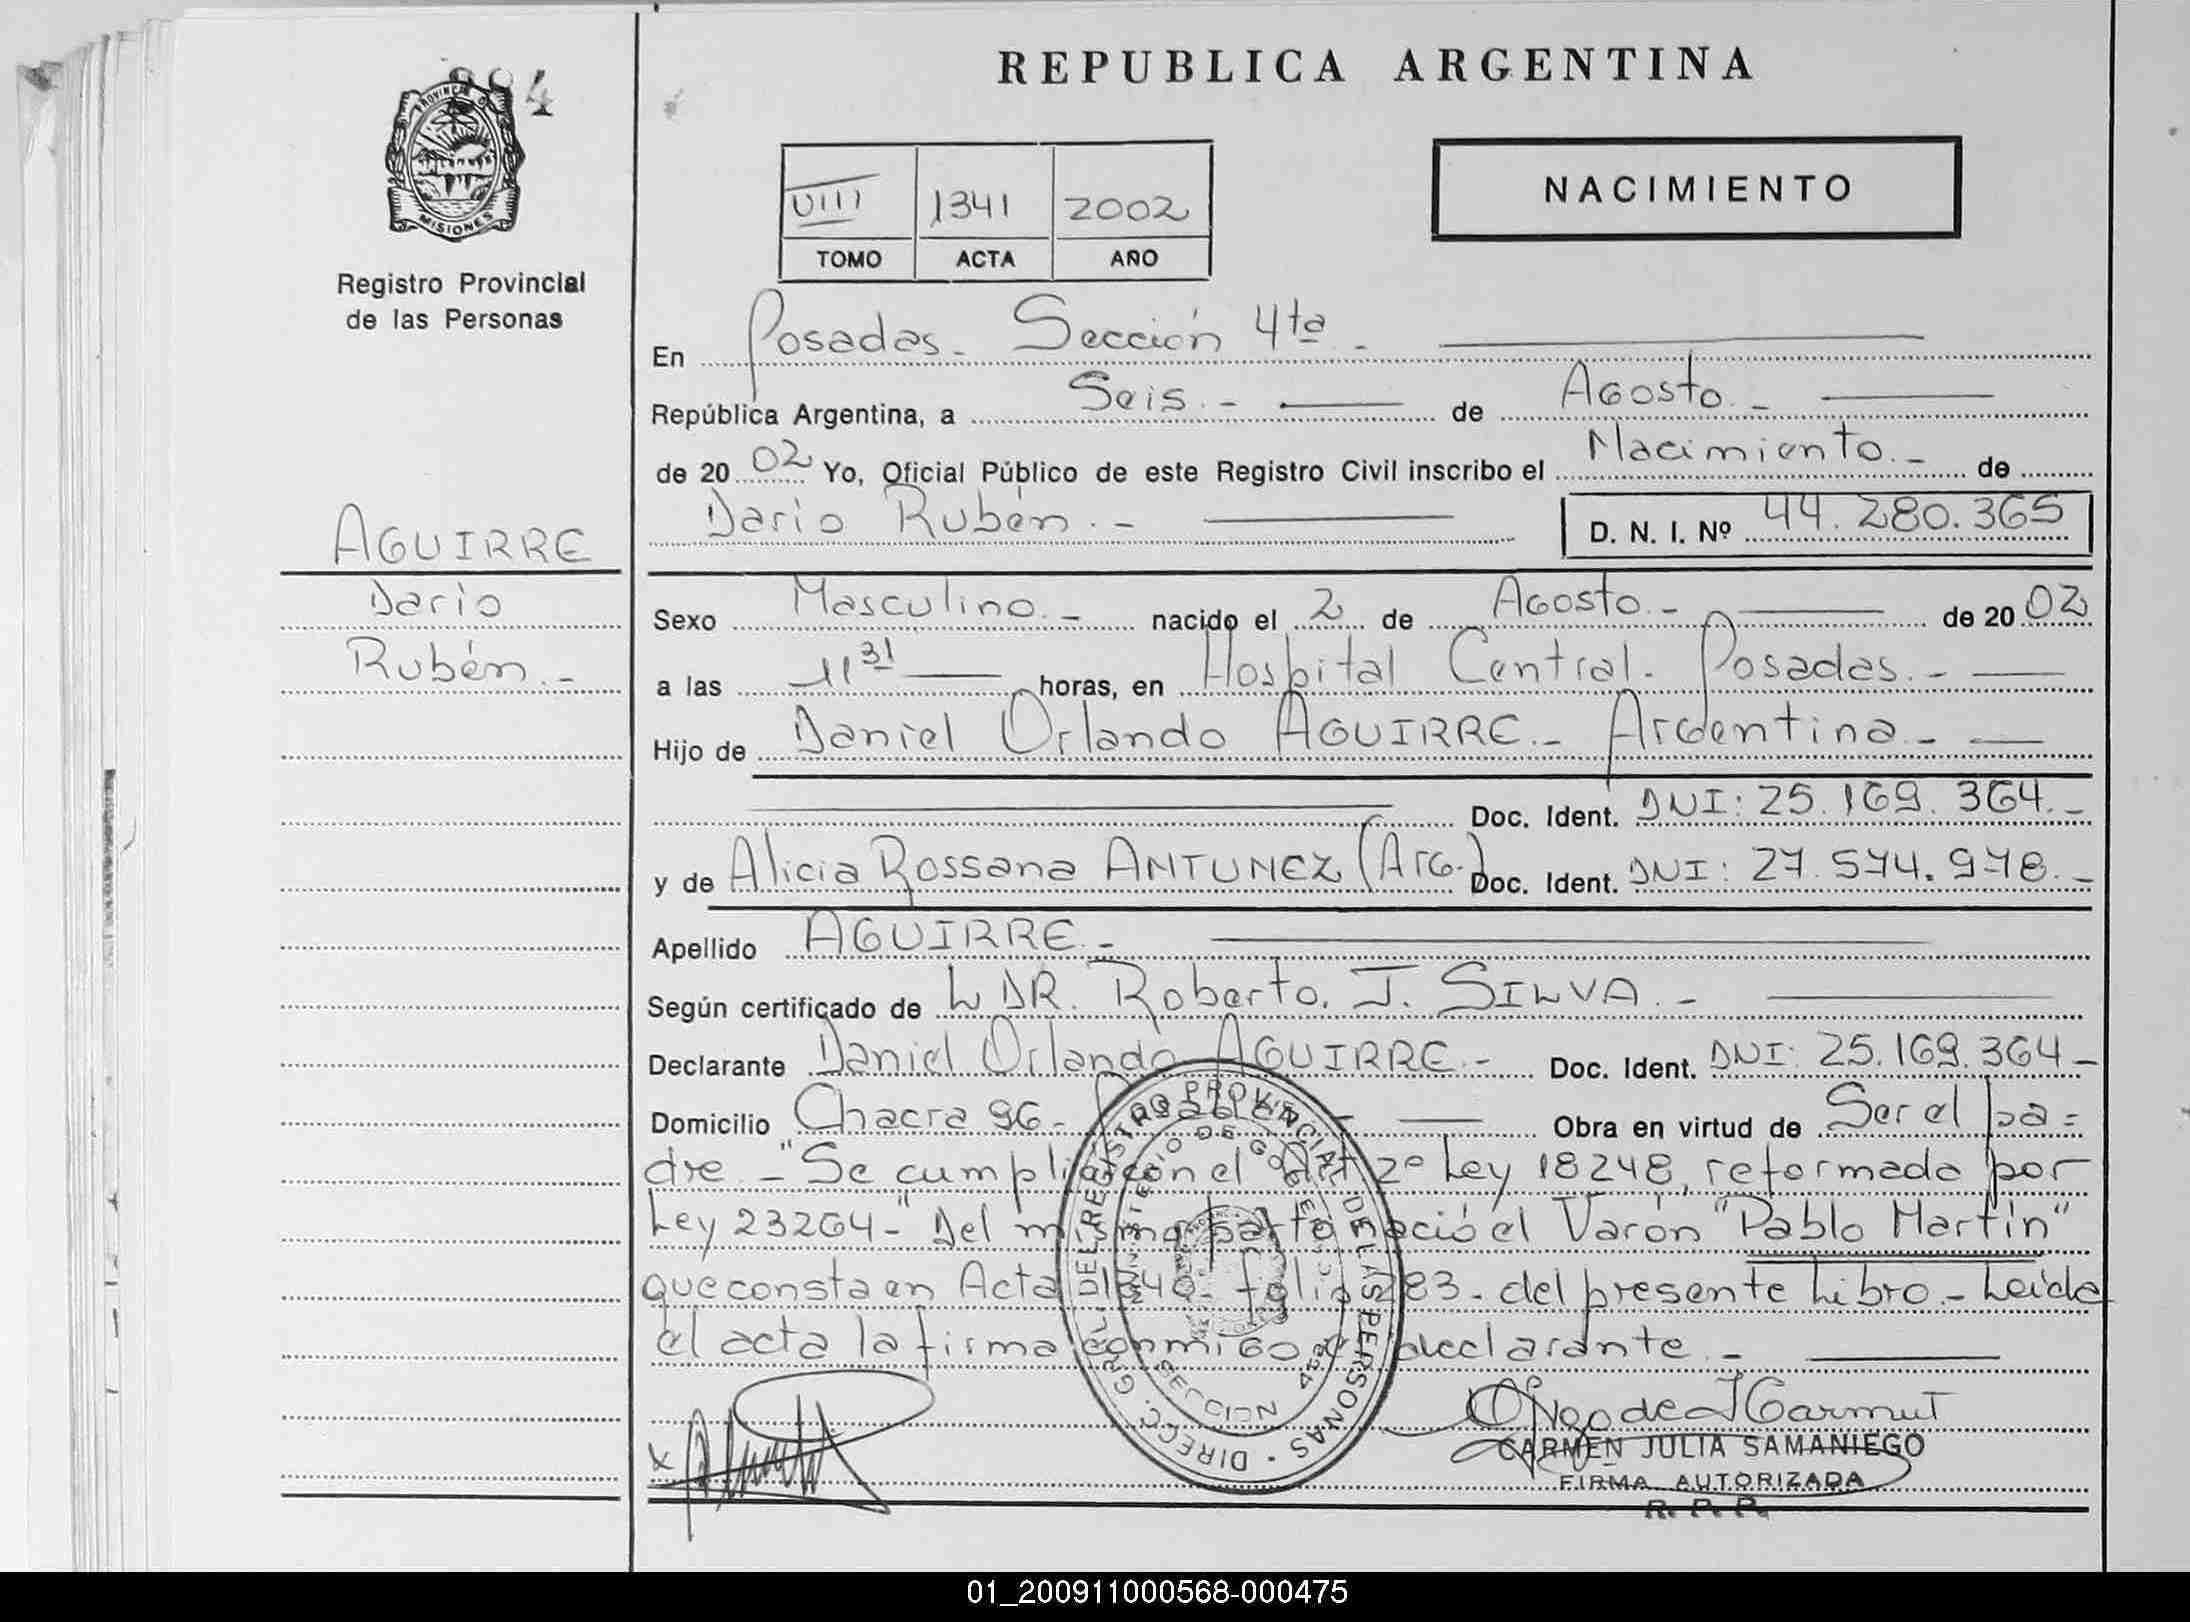 REPUBLICA ARGENTINA
PROVINCIA DE
MISIONES
Registro Provincial
de las Personas
VIII 1341 2002
TOMO ACTA AÑO
NACIMIENTO
En Posadas.- Sección 4ta.-
República Argentina, a Seis.- de Agosto.-
de 2002 Yo, Oficial Público de este Registro Civil inscribo el Nacimiento.- de
Dario Rubén.- D. N. I. Nº 44.280.365
AGUIRRE
Dario
Rubén.-
Sexo Masculino.- nacido el 2 de Agosto.- de 2002
a las 11 31 horas, en Hospital Central - Posadas.-
Hijo de Daniel Orlando AGUIRRE.- Argentina.-
Doc. Ident. DNI: 25.169.364.-
y de Alicia Rossana ANTUNEZ (Arg.) Doc. Ident. DNI: 27.574.978.-
Apellido AGUIRRE.-
Según certificado de L DR. Roberto. J. SILVA.-
Declarante Daniel Orlando AGUIRRE.- Doc. Ident. DNI: 25.169.364-
Domicilio Chacra 96- Posadas.- Obra en virtud de Ser el pa=
dre.- "Se cumplió con el Art 2º Ley 18248, reformada por
Ley 23264-" Del mismo parto nació el Varón "Pablo Martín"
que consta en Acta 1340- folio 283- del presente Libro.- Leída
el acta la firma conmigo el declarante.-
DIRECC. GRAL. DEL REGISTRO PROVINCIAL DE LAS PERSONAS
MINISTERIO DE GOBIERNO
SECCION 4ta
CARMEN JULIA SAMANIEGO
FIRMA AUTORIZADA
R. P. P.
01_200911000568-000475